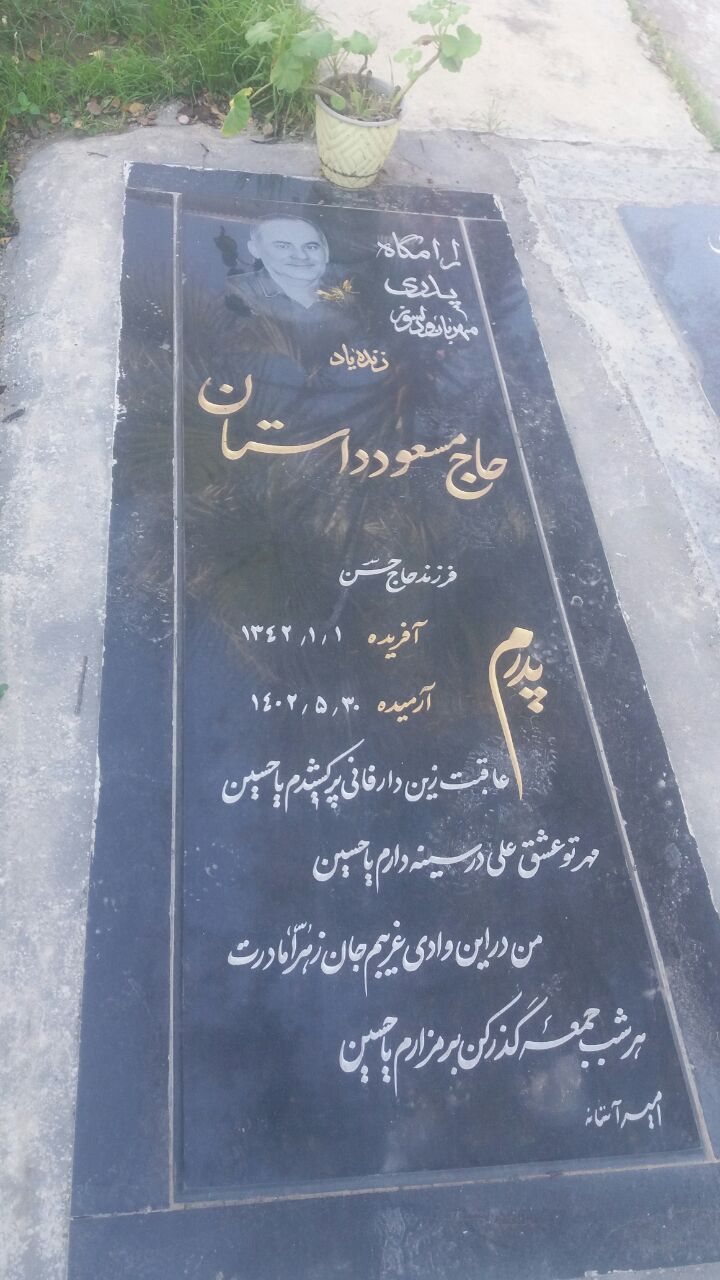 ارامگاه
پدری
مهربان و دلسوز
زنده یاد
حاج مسعود داستان
فرزند حاج حسن
آفریده ۱۳۴۲/۱/۱
آرمیده ۱۴۰۲/۵/۳۰
پدرم
عاقبت زین دار فانی پر کشیدم یا حسین
مهر تو عشق علی در سینه دارم یا حسین
من در این وادی غریبم جان زهرا مادرت
هر شب جمعه گذر کن بر مزارم یا حسین